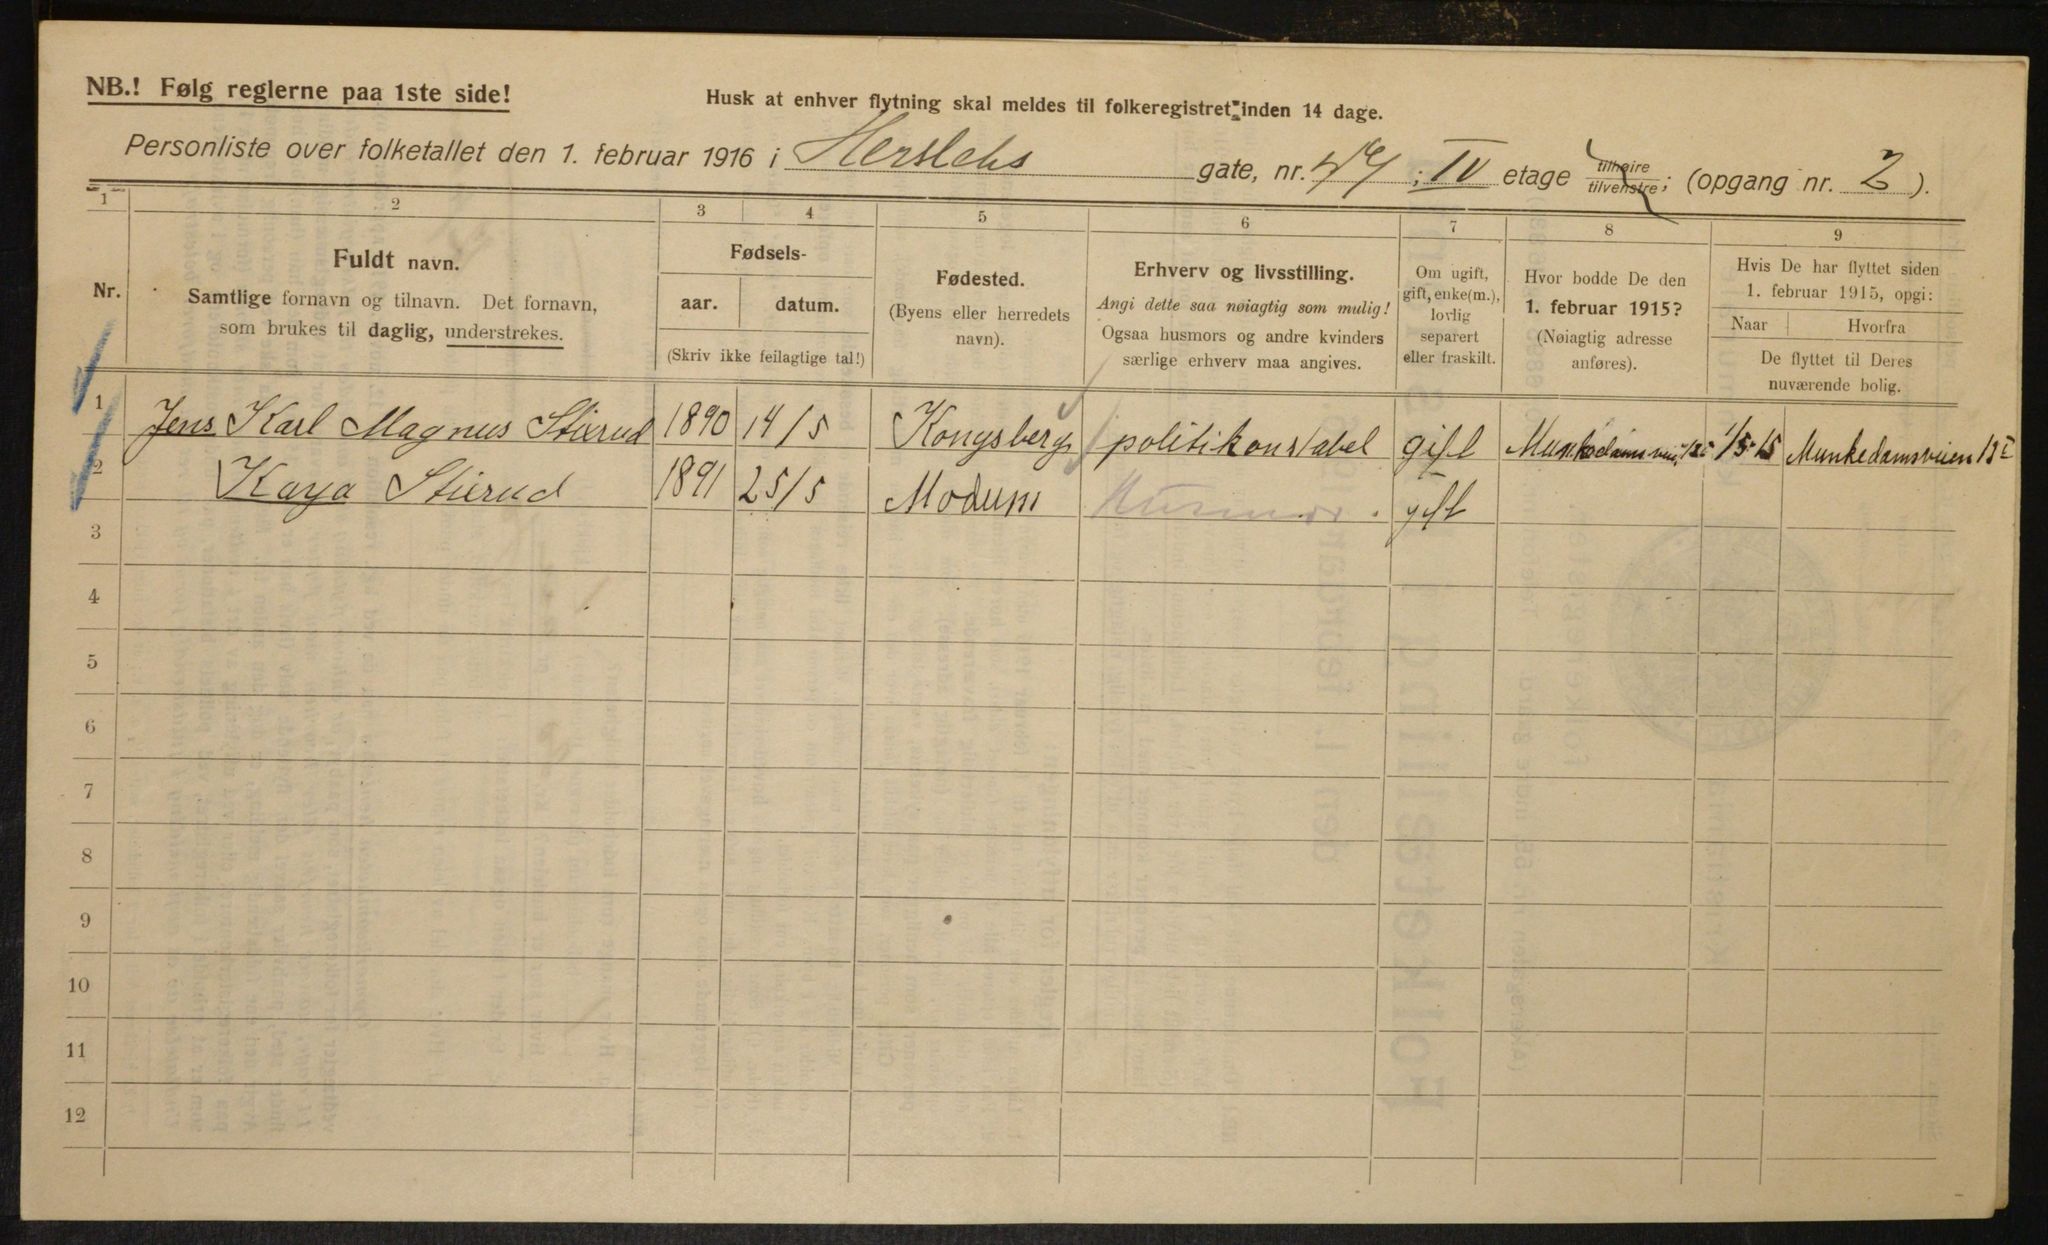 NB.! Følg reglerne paa 1ste side!
Husk at enhver flytning skal meldes til folkeregistret inden 14 dage.
Personliste over folketallet den 1. februar 1916 i Herslebs gate, nr. ; IV etage tilhøire tilvenstre; (opgang nr. 2).
1 2 3 4 5 6 7 8 9
Nr.
Fuldt navn.
Samtlige fornavn og tilnavn. Det fornavn,
som brukes til daglig, understrekes.
Fødsels-
aar. datum.
(Skriv ikke feilagtige tal!)
Fødested.
(Byens eller herredets
navn).
Erhverv og livsstilling.
Angi dette saa nøiagtig som mulig!
Ogsaa husmors og andre kvinders
særlige erhverv maa angives.
Om ugift,
gift, enke(m.),
lovlig
separert
eller fraskilt.
Hvor bodde De den
1. februar 1915?
(Nøiagtig adresse
anføres).
Hvis De har flyttet siden
1. februar 1915, opgi:
Naar Hvorfra
De flyttet til Deres
nuværende bolig.
1 Jens Karl Magnus Stixrud 1890 14/5 Kongsberg politikonstabel gift Munkedamsvei 1/5-15 Munkedamsveien
2 Kaya Stixrud 1891 25/5 Modum Husmor gift
3
4
5
6
7
8
9
10
11
12